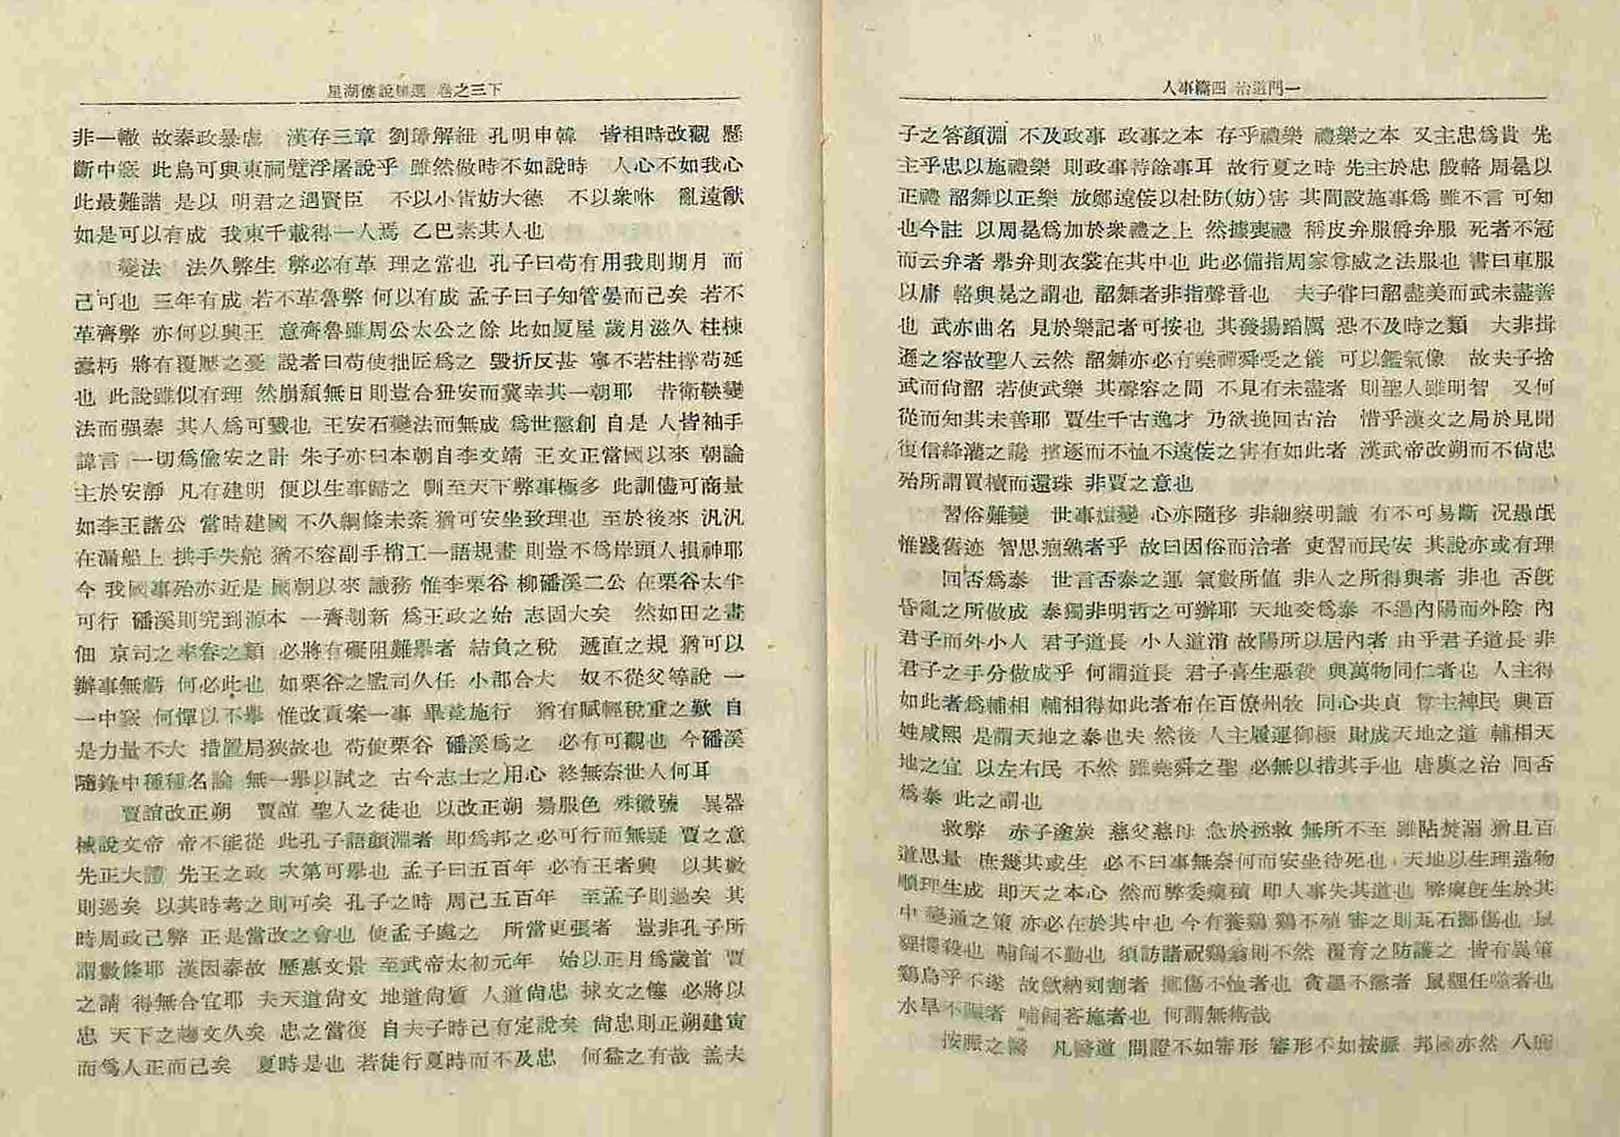 星湖僿說類選 卷之三下
非一轍 故秦政暴虐 漢存三章 劉璋解紐 孔明申韓 皆相時改觀 懸
斷中窾 此烏可與東祠甓浮屠說乎 雖然做時不如說時 人心不如我心
此最難諧 是以 明君之遇賢臣 不以小眚妨大德 不以衆咻 亂遠猷
如是可以有成 我東千載得一人焉 乙巴素其人也
變法 法久弊生 弊必有革 理之當也 孔子曰苟有用我則期月 而
己可也 三年有成 若不革魯弊 何以有成 孟子曰子知管晏而己矣 若不
革齊弊 亦何以興王 意齊魯雖周公太公之餘 比如厦屋 歲月滋久 柱棟
蠹朽 將有覆壓之憂 說者曰苟使拙匠爲之 毁折反甚 寧不若柱撑苟延
也 此說雖似有理 然崩頹無日則豈合狃安而冀幸其一朝耶 昔衛鞅變
法而强秦 其人爲可戮也 王安石變法而無成 爲世懲創 自是 人皆袖手
諱言 一切爲偸安之計 朱子亦曰本朝自李文靖 王文正當國以來 朝論
主於安靜 凡有建明 便以生事歸之 馴至天下弊事極多 此訓儘可商量
如李王諸公 當時建國 不久綱條未紊 猶可安坐致理也 至於後來 汎汎
在漏船上 拱手失舵 猶不容副手梢工一語規畫 則豈不爲岸頭人損神耶
今 我國事殆亦近是 國朝以來 識務 惟李栗谷 柳磻溪二公 在栗谷太半
可行 磻溪則究到源本 一齊剗新 爲王政之始 志固大矣 然如田之畫
佃 京司之率眷之類 必將有礙阻難擧者 結負之稅 遞直之規 猶可以
辦事無虧 何必此也 如栗谷之監司久任 小郡合大 奴不從父等說 一
一中窾 何憚以不擧 惟改貢案一事 畢竟施行 猶有賦輕稅重之歎 自
是力量不大 措置局狹故也 苟使栗谷 磻溪爲之 必有可觀也 今磻溪
隨錄中種種名論 無一擧以試之 古今志士之用心 終無奈世人何耳
賈誼改正朔 賈誼 聖人之徒也 以改正朔 易服色 殊徽號 異器
械說文帝 帝不能從 此孔子語顏淵者 即爲邦之必可行而無疑 賈之意
先正大體 先王之政 次第可擧也 孟子曰五百年 必有王者興 以其數
則過矣 以其時考之則可矣 孔子之時 周己五百年 至孟子則過矣 其
時周政己弊 正是當改之會也 使孟子處之 所當更張者 豈非孔子所
謂數條耶 漢因秦故 歷惠文景 至武帝太初元年 始以正月爲歲首 賈
之請 得無合宜耶 夫天道尙文 地道尙質 人道尙忠 捄文之僿 必將以
忠 天下之趨文久矣 忠之當復 自夫子時己有定說矣 尙忠則正朔建寅
而爲人正而己矣 夏時是也 若徒行夏時而不及忠 何益之有哉 盖夫
人事篇四 治道門一
子之答顏淵 不及政事 政事之本 存乎禮樂 禮樂之本 又主忠爲貴 先
主乎忠以施禮樂 則政事特餘事耳 故行夏之時 先主於忠 殷輅 周冕以
正禮 韶舞以正樂 放鄭遠侫以杜防(妨)害 其間設施事爲 雖不言 可知
也今註 以周冕爲加於衆禮之上 然據喪禮 稱皮弁服爵弁服 死者不冠
而云弁者 擧弁則衣裳在其中也 此必備指周家尊威之法服也 書曰車服
以庸 輅與冕之謂也 韶舞者非指聲音也 夫子嘗曰韶盡美而武未盡善
也 武亦曲名 見於樂記者可按也 其發揚蹈厲 恐不及時之類 大非揖
遜之容故聖人云然 韶舞亦必有堯禪舜受之儀 可以鑑氣像 故夫子捨
武而尙韶 若使武樂 其聲容之間 不見有未盡者 則聖人雖明智 又何
從而知其未善耶 賈生千古逸才 乃欲挽回古治 惜乎漢文之局於見聞
復信絳灌之讒 擯逐而不恤不遠侫之害有如此者 漢武帝改朔而不尙忠
殆所謂買櫝而還珠 非賈之意也
習俗難變 世事嬗變 心亦隨移 非細察明識 有不可易斷 况愚氓
惟踐舊迹 智思痼熟者乎 故曰因俗而治者 吏習而民安 其說亦或有理
回否爲泰 世言否泰之運 氣數所值 非人之所得與者 非也 否旣
昏亂之所做成 泰獨非明哲之可辦耶 天地交爲泰 不過內陽而外陰 內
君子而外小人 君子道長 小人道消 故陽所以居內者 由乎君子道長 非
君子之手分做成乎 何謂道長 君子喜生惡殺 與萬物同仁者也 人主得
如此者爲輔相 輔相得如此者布在百僚州牧 同心共貞 尊主裨民 與百
姓咸熙 是謂天地之泰也夫 然後 人主履運御極 財成天地之道 輔相天
地之宜 以左右民 不然 雖堯舜之聖 必無以措其手也 唐虞之治 回否
爲泰 此之謂也
救弊 赤子塗炭 慈父慈母 急於拯救 無所不至 雖阽焚溺 猶且百
道思量 庶幾其或生 必不曰事無奈何而安坐待死也 天地以生理造物
順理生成 即天之本心 然而弊委瘼積 即人事失其道也 弊瘼旣生於其
中 變通之策 亦必在於其中也 今有養鷄 鷄不殖 審之則瓦石擲傷也 鼠
貍攫殺也 哺飼不勤也 須訪諸祝鷄翁則不然 覆育之防護之 皆有異策
鷄烏乎不遂 故歛納刻割者 擲傷不恤者也 貪墨不懲者 鼠貍任噬者也
水旱不賑者 哺飼吝施者也 何謂無術哉
按脈之醫 凡醫道 問證不如審形 審形不如按脈 邦國亦然 八